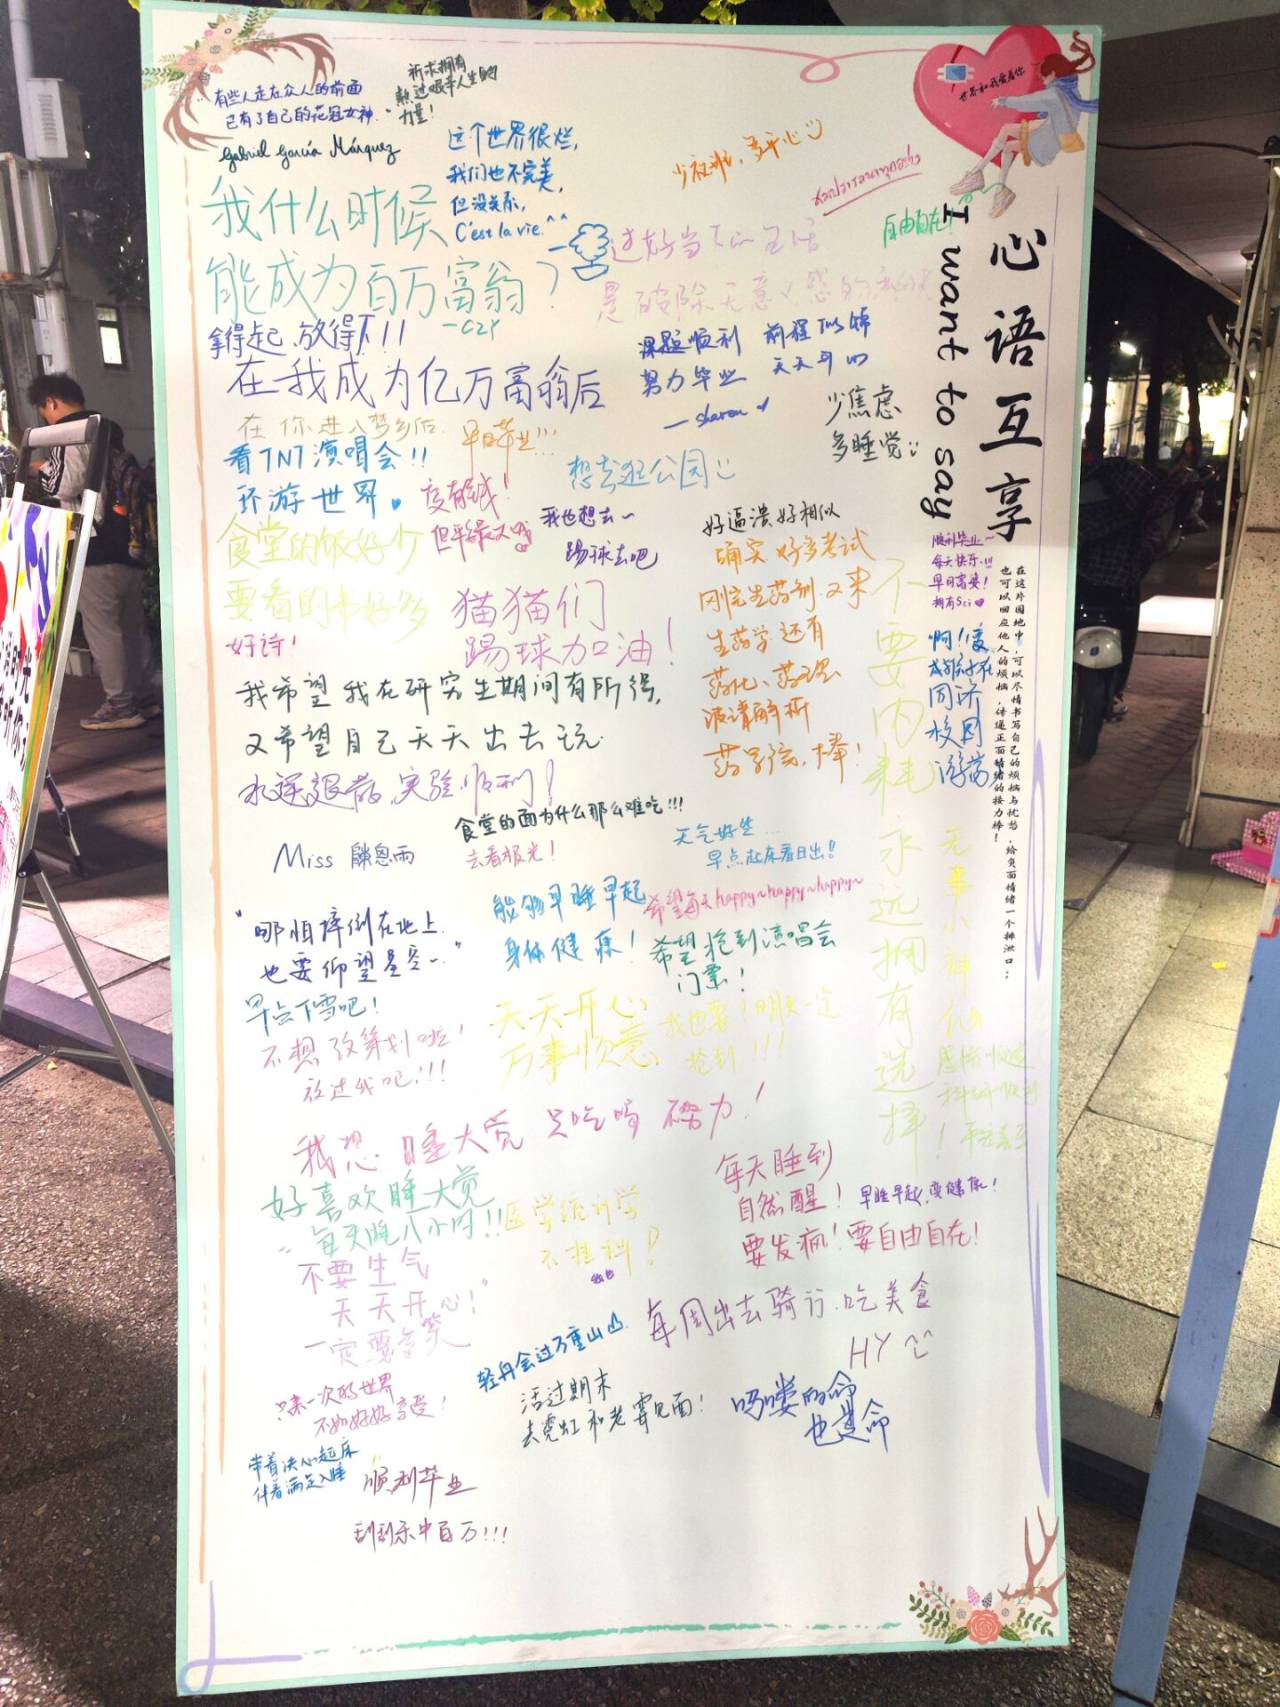 心语互享
I want to say
在这片园地中,可以尽情书写自己的烦恼与忧愁,给负面情绪一个排泄口;
也可以回应他人的烦恼,传递正面情绪的接力棒!
世界和我爱着你
"有些人走在众人的前面
已有了自己的花冠女神."
Gabriel García Márquez
祈求拥有
熬过艰辛人生的
力量!
这个世界很烂,
我们也不完美,
但没关系,
C'est la vie.^^
多开心
自由自在!
我什么时候
能成为百万富翁?
-CZY
过好当下的生活
是破除无意义感的
拿得起,放得下!!
在我成为亿万富翁后
课题顺利
努力毕业
—sharon
前程似锦
天天开心
少焦虑
多睡觉
在你进入梦乡后
早日毕业!!!
看TNT演唱会!!
环游世界
想去逛公园
我也想去~
踢球去吧
食堂的饭好少
要看的书好多
好诗!
猫猫们
踢球加油!
好逼溃好相似
确实好多考试
刚完生药剂又来
生药学还有
药化、药理
波谱解析
药学院,棒!
顺利毕业~
每天快乐!!!
早日富婆!
拥有Sci
同济
校园
游荡
不要内耗永远拥有选择!
无事小神仙
我希望我在研究生期间有所得,
又希望自己天天出去玩.
水逆退散,实验顺利!
食堂的面为什么那么难吃!!!
去看极光!
Miss 恩雨
天气好生...
早点起床看日出!!
能够早睡早起
身体健康!
希望每天happy~happy~happy~
希望抢到演唱会
门票!
我也要!明天一定
抢到!!!
"哪怕摔倒在地上
也要仰望星空~."
早点下雪吧!
不想改策划啦!
放过我吧!!!
天天开心
万事顺意
我想睡大觉
努力!
好喜欢睡大觉
每天睡八小时!!
医学统计学
不挂科!
每天睡到
自然醒!
早睡早起,变健康!
要发疯!要自由自在!
"不要生气
天天开心!"
一定要多笑
每周出去骑行.吃美食
HY
轻舟会过万重山
活过期末
去霓虹和老婆见面!
吗喽的命
也是命
只来一次的世界
不如好好享受!
带着决心起床
伴着满足入睡
顺利毕业
刮刮乐中百万!!!